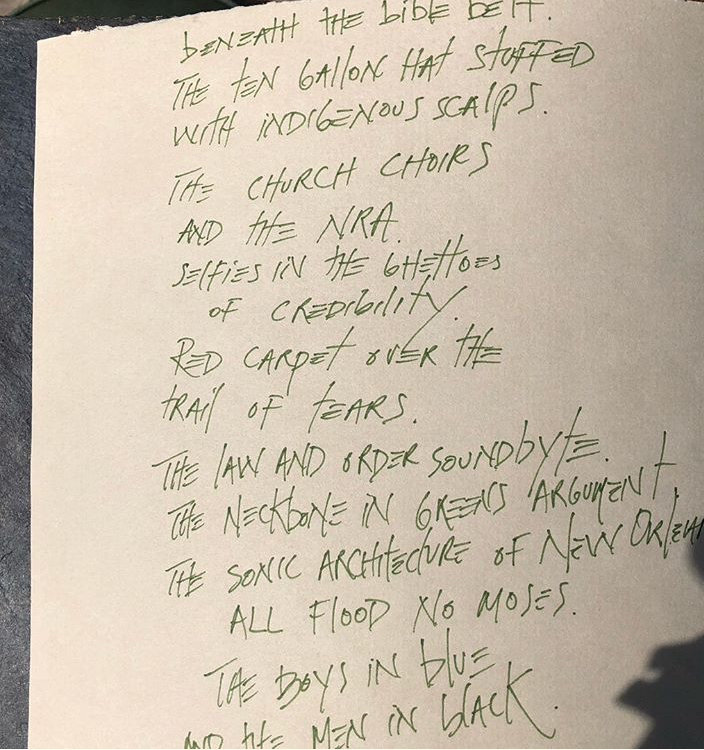 BENEATH THE BIBLE BELT.
THE TEN GALLON HAT STUFFED
WITH INDIGENOUS SCALPS.
THE CHURCH CHOIRS
AND THE NRA.
SELFIES IN THE GHETTOES
OF CREDIBILITY.
RED CARPET OVER THE
TRAIL OF TEARS.
THE LAW AND ORDER SOUNDBYTE.
THE NECKBONE IN GREENS ARGUMENT.
THE SONIC ARCHITECTURE OF NEW ORLEAN
ALL FLOOD NO MOSES.
THE BOYS IN BLUE
AND THE MEN IN BLACK.